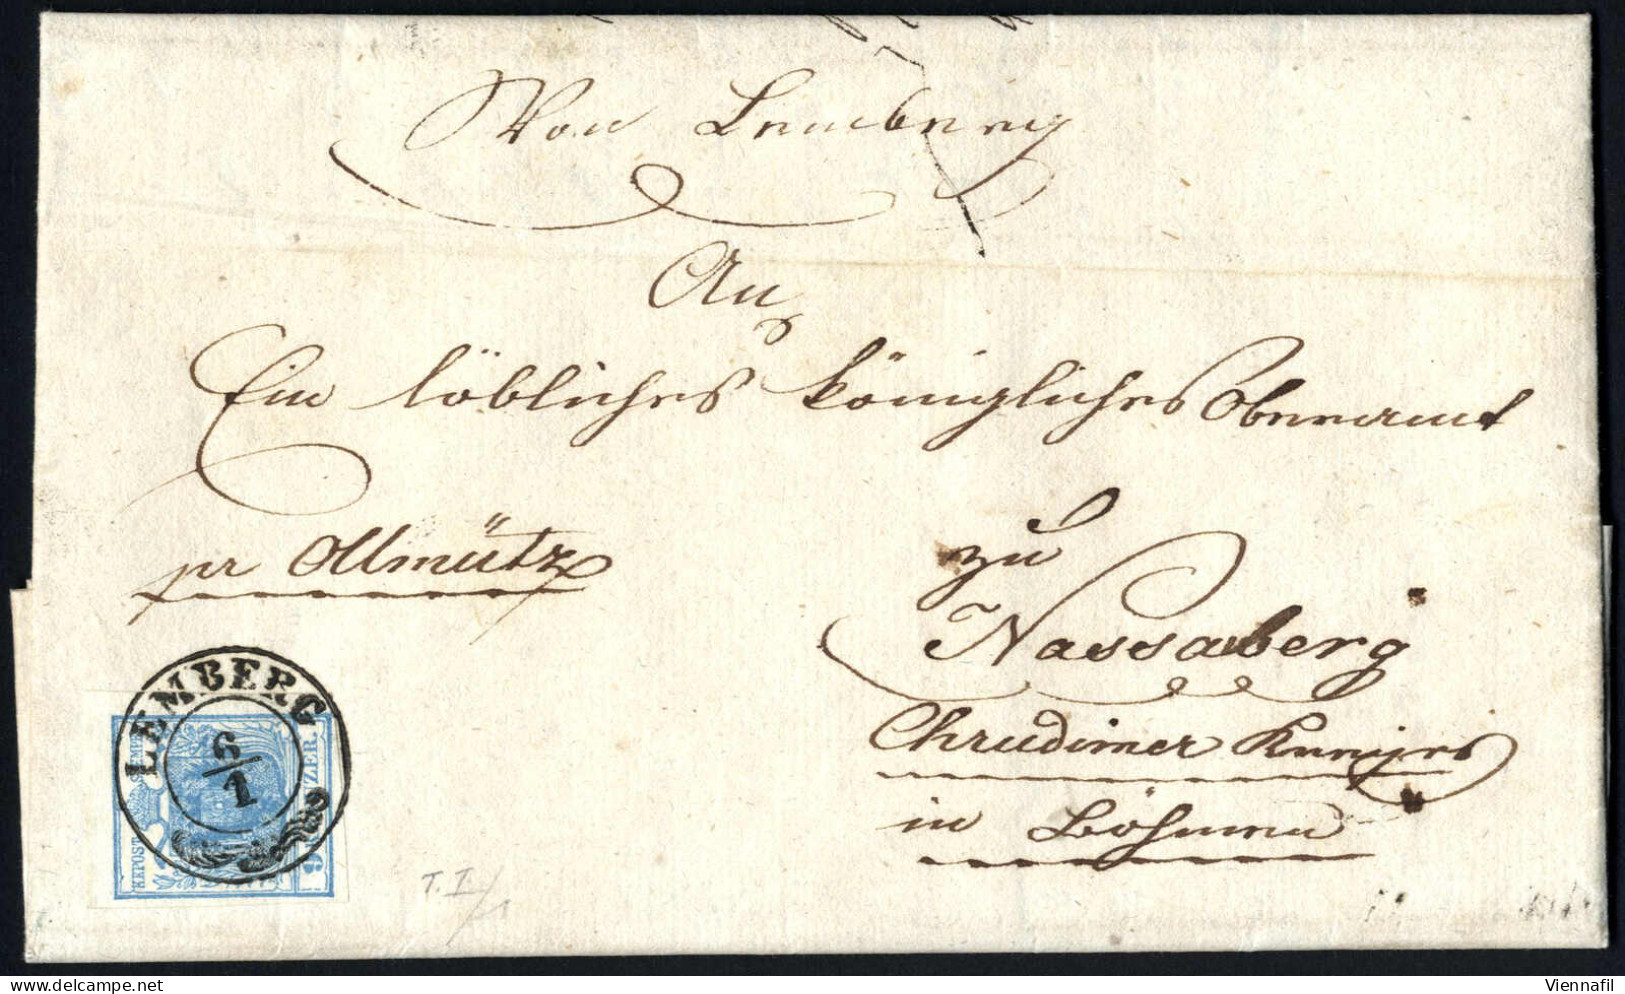 Von Lemberg
An
Ein löbliches königliches Oberamt
pr Ollmütz
zu
Nassaberg
Chrudimer Kreises
in Böhmen
LEMBERG
6/1
KKPOST STEMPEL
9
KREUZER
T. I
Viennafil